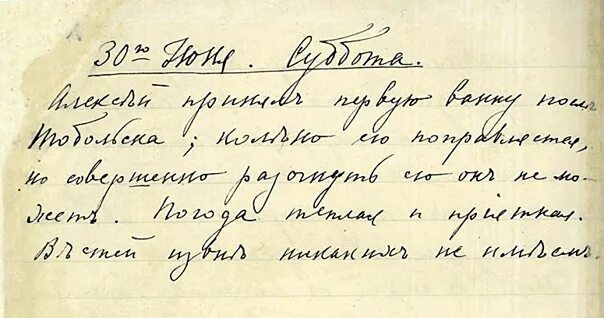 30го Июня. Суббота.
Алексѣй принялъ первую ванну послѣ
Тобольска; колѣно его поправляется,
но совершенно разогнуть его онъ не мо-
жетъ. Погода теплая и пріятная.
Вѣстей извнѣ никакихъ не имѣемъ.